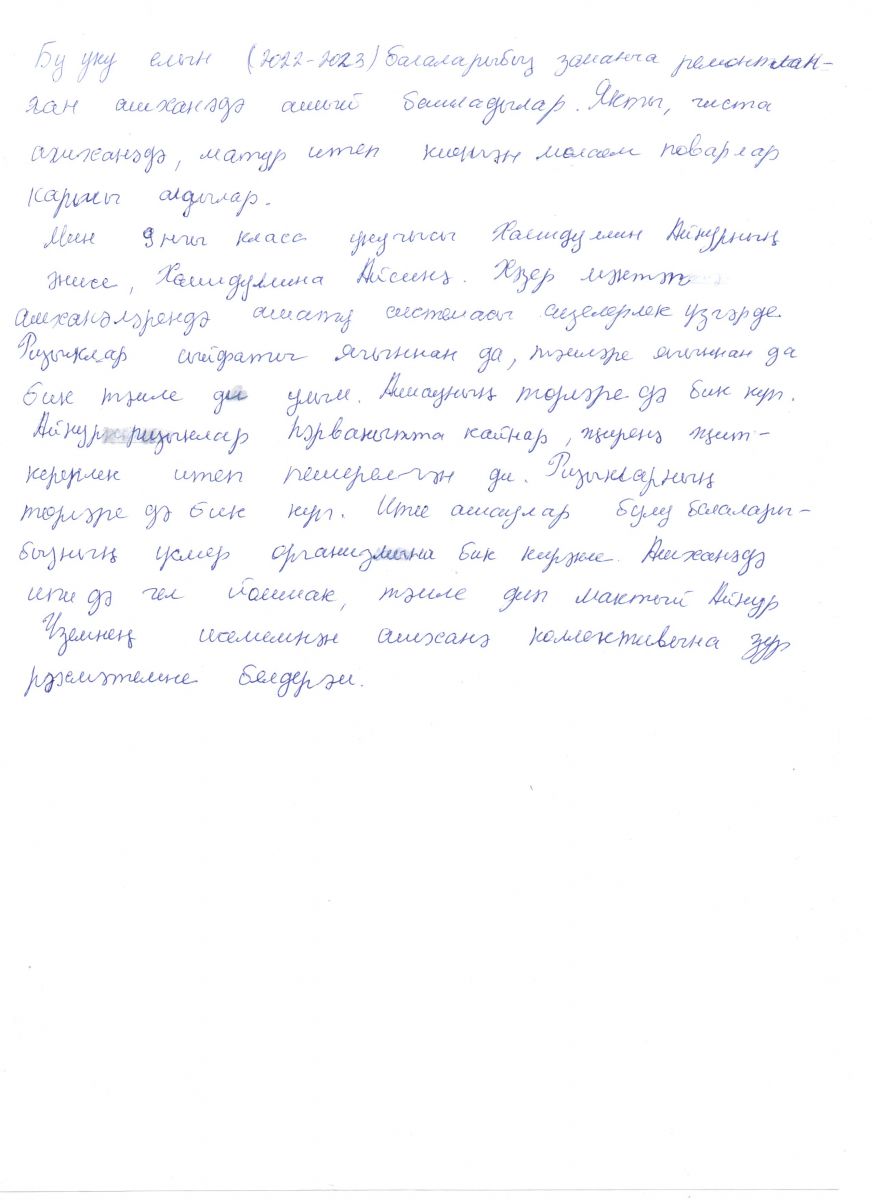 Бу уку елын (2022-2023) балаларыбыз заманча ремонтлан-
ган ашханәдә ашый башладылар. Якты, чиста
ашханәдә, матур итеп киенгән мөлаем поварлар
каршы алдылар.
Мин 9 нчы класс укучысы Хамидуллин Айнурның
әнисе, Хамидуллина Айсинә. Хәзер мәктәп
ашханәләрендә ашату системасы сизелерлек үзгәрде.
Ризыклар сыйфаты ягыннан да, тәмләре ягыннан да
бик тәмле ди улым. Ашауның төрләре дә бик күп.
Айнур ризыклар һәрвакытта кайнар, җиренә җит-
керерлек итеп пешерелгән ди. Ризыкларның
төрләре дә бик күп. Итле ашаулар булу балалары-
бызның үсмер организмына бик кирәкле. Ашханәдә
ипи дә гел йомшак, тәмле дип мактый Айнур
Үземнең исемемнән ашханә коллективына зур
рәхмәтемне белдерәм.